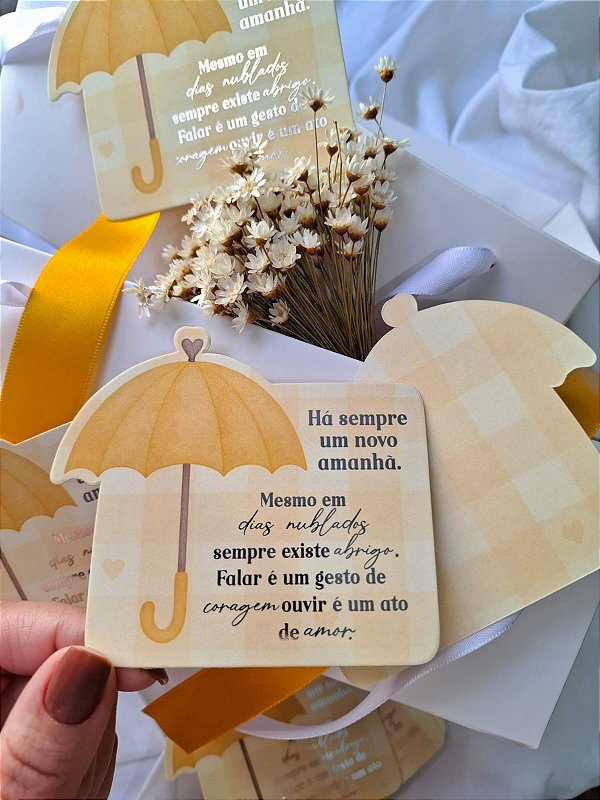 um novo
amanhã.
Mesmo em
dias nublados
sempre existe abrigo.
Falar é um gesto de
coragem ouvir é um ato
amor.
Há sempre
um novo
amanhã.
Mesmo em
dias nublados
sempre existe abrigo.
Falar é um gesto de
coragem ouvir é um ato
de amor.
am
Mesmo
dias nu
sempre
Falar